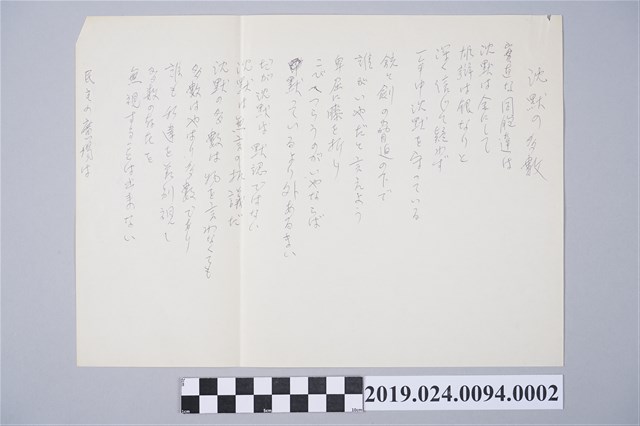 沈黙の多数
な同胞達は
沈黙は金にして
雄弁は銀なりと
深く信じて疑わず
一年中沈黙を守っている
銃と剣の脅迫の下で
誰がいやだと言えよう
卑屈に膝を折り
こびへつらうのがいやならば
黙っているより外あるまい
だが沈黙は黙認ではない
沈黙は無言の抗議だ
沈黙の多数は物を言わなくても
多数はやはり多数であり
誰も我達を無視し
多数の存在を
無視することは出来ない
民主の広場は
2019.024.0094.0002